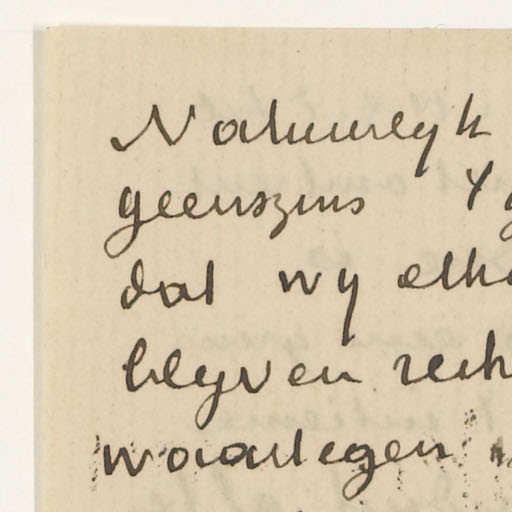 Natuurlyk
geenszins
dat wy elk
blyven
waartegen